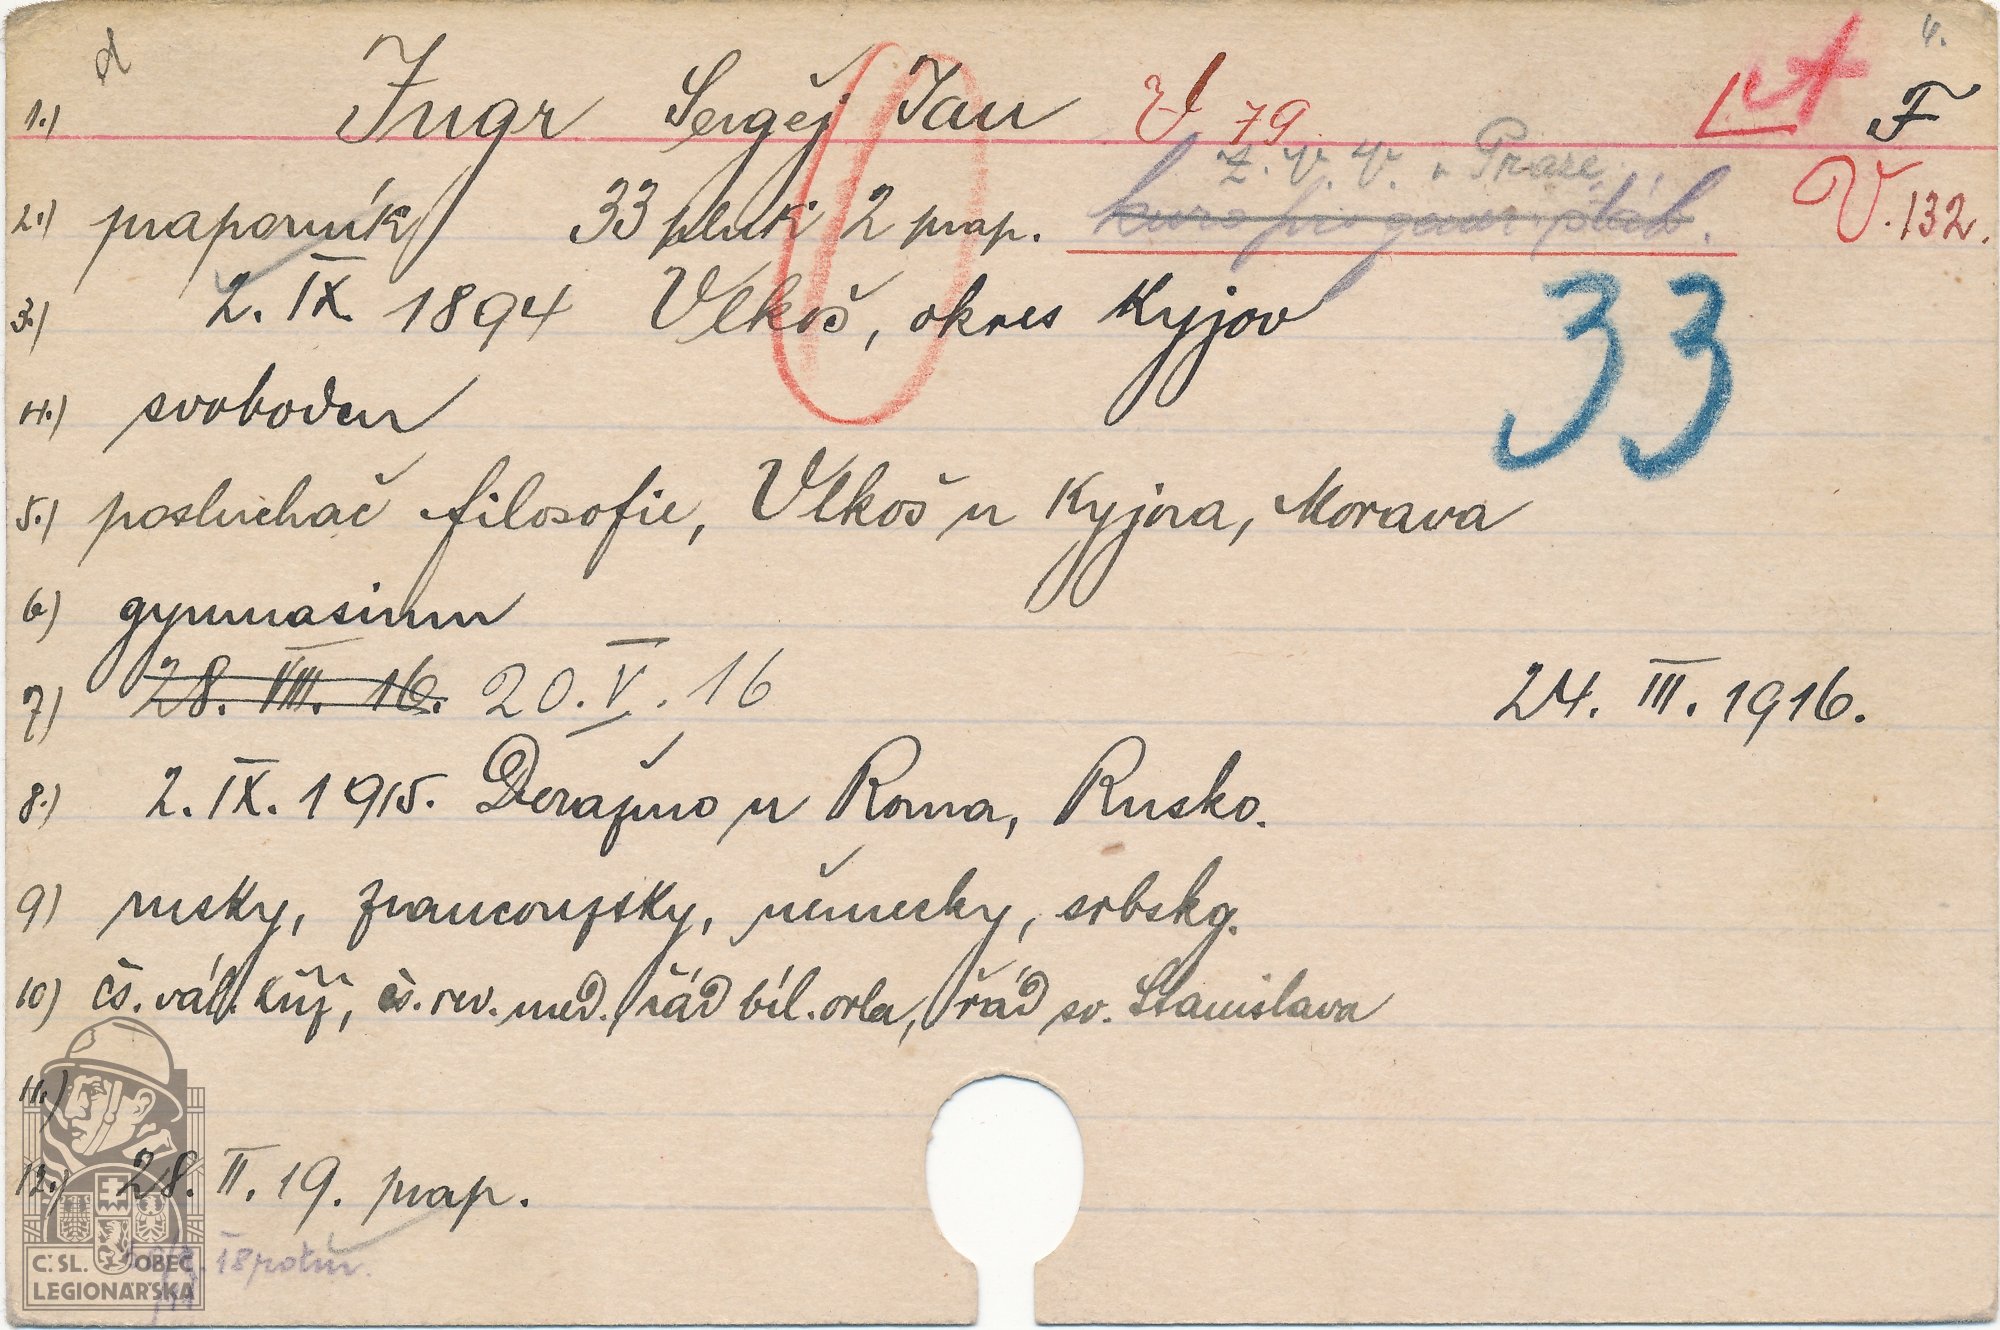 1.) Ingr Sergěj Jan 79 F
Z.V.V. v Praze
2.) praporník 33 pluk 2 prap. V. 132.
3.) 2. IX. 1894 Vlkoš, okres Kyjov
33
4.) svoboden
5.) posluchač filosofie, Vlkoš u Kyjova, Morava
6) gymnasium
7) 28. VIII. 16. 20. V. 16 24. III. 1916.
8.) 2. IX. 1915. Deražno u Rovna, Rusko.
9) rusky, francouzsky, německy, srbsky.
10) čs. vál. kříž, čs. rev. med. řád bíl. orla, řád sv. Stanislava
11.)
12.) 28. II. 19. prap.
Č.SL. OBEC
LEGIONÁŘSKÁ